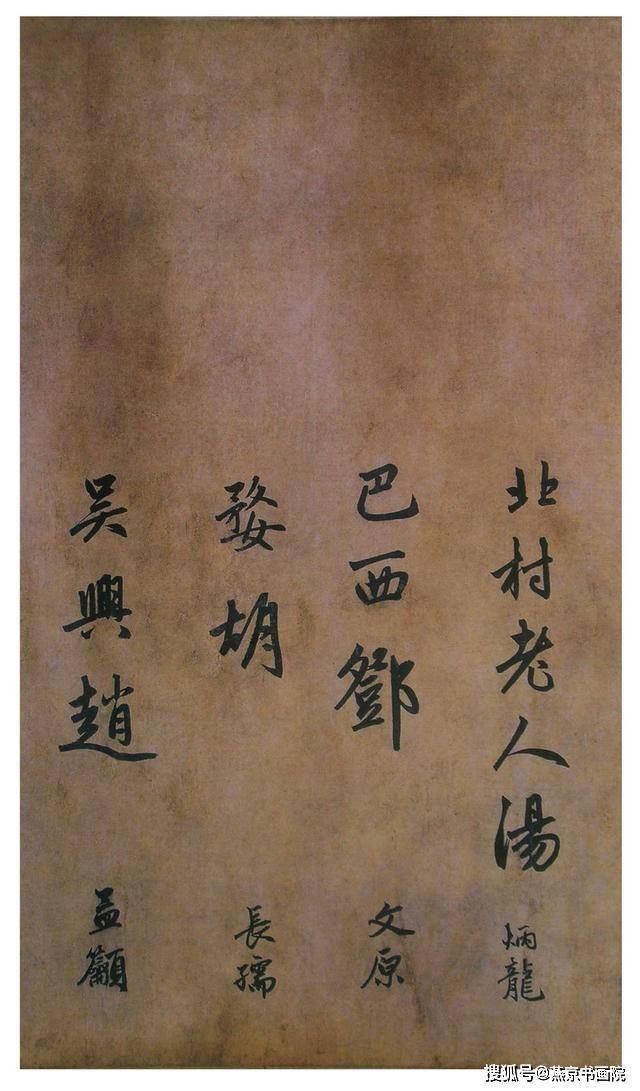 北村老人湯 炳龍
巴西鄧 文原
婺胡 長孺
吴興趙 孟籲
搜狐号@燕京书画院